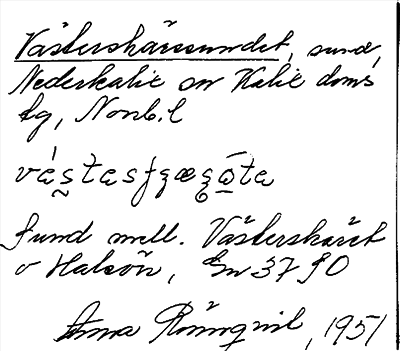 Västerskärssundet, sund,
Nederkalix sn Kalix doms
tg, Nonb.l
Sund mell. Västerskäret
o Halsön, Gn 37 SO
Anna Rönnqvist, 1951